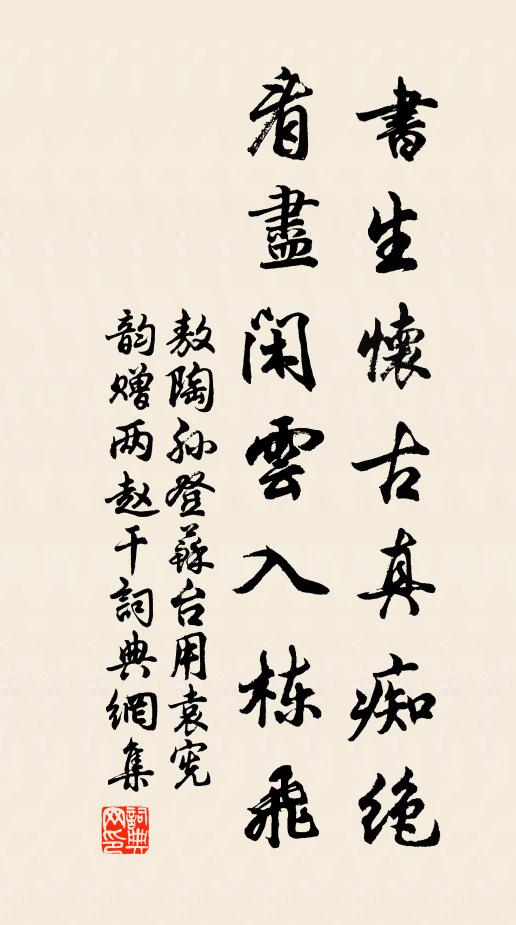 書生懷古真痴絶
看盡閑雲入栋飛
敖陶孙登蘇台用袁宪
韵赠两赵干詞典網集
詞典网印